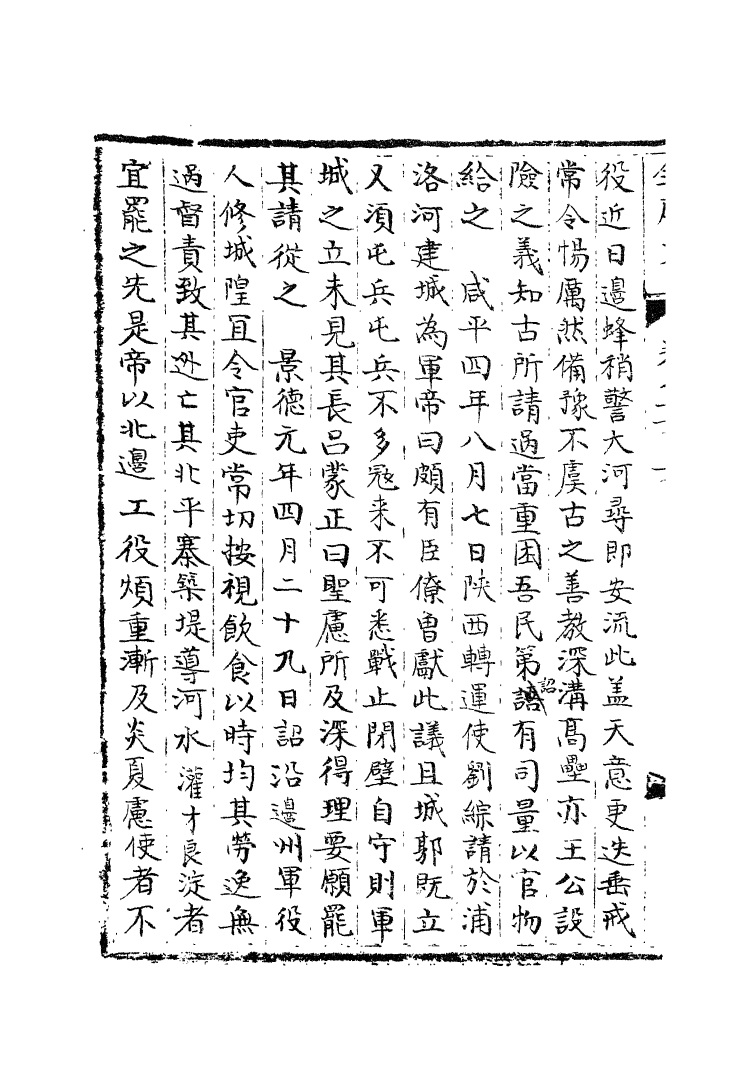 役近日邊蜂稍警大河尋即安流此盖天意更迭垂戒
常令惕厲然備豫不虞古之善教深溝高壘亦王公設
險之義知古所請過當重困吾民第語詔有司量以官物
給之　咸平四年八月七日陝西轉運使劉綜請於浦
洛河建城為軍帝曰頗有臣僚曽獻此議且城郭既立
又湏屯兵屯兵不多冦来不可悉戰止閉壁自守則軍
城之立未見其長吕蒙正曰聖慮所及深得理要願罷
其請從之　景德元年四月二十九日詔沿邊州軍役
人修城隍宜令官吏常切按視飲食以時均其勞逸無
過督責致其逃亡其北平寨築堤導河水灌才良淀者
宜罷之先是帝以北邊工役煩重漸及炎夏慮使者不